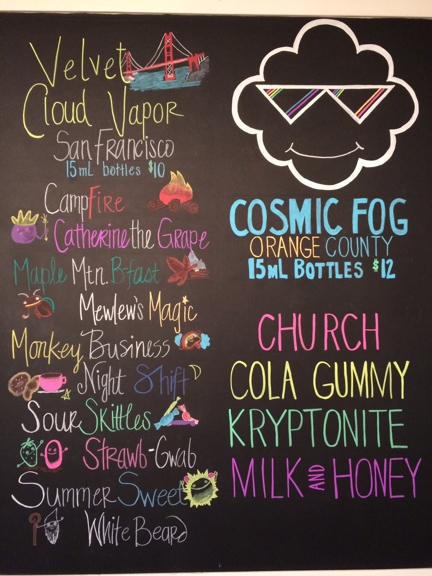 Velvet
Cloud Vapor
San Francisco
15mL bottles $10
Campfire
Catherine the Grape
Maple Mtn. B-fast
Mewlew's Magic
Monkey Business
Night Shift
Sour Skittles
Strawb-Gwab
Summer Sweet
White Beard
COSMIC FOG
ORANGE COUNTY
15ML BOTTLES $12
CHURCH
COLA GUMMY
KRYPTONITE
MILK AND HONEY